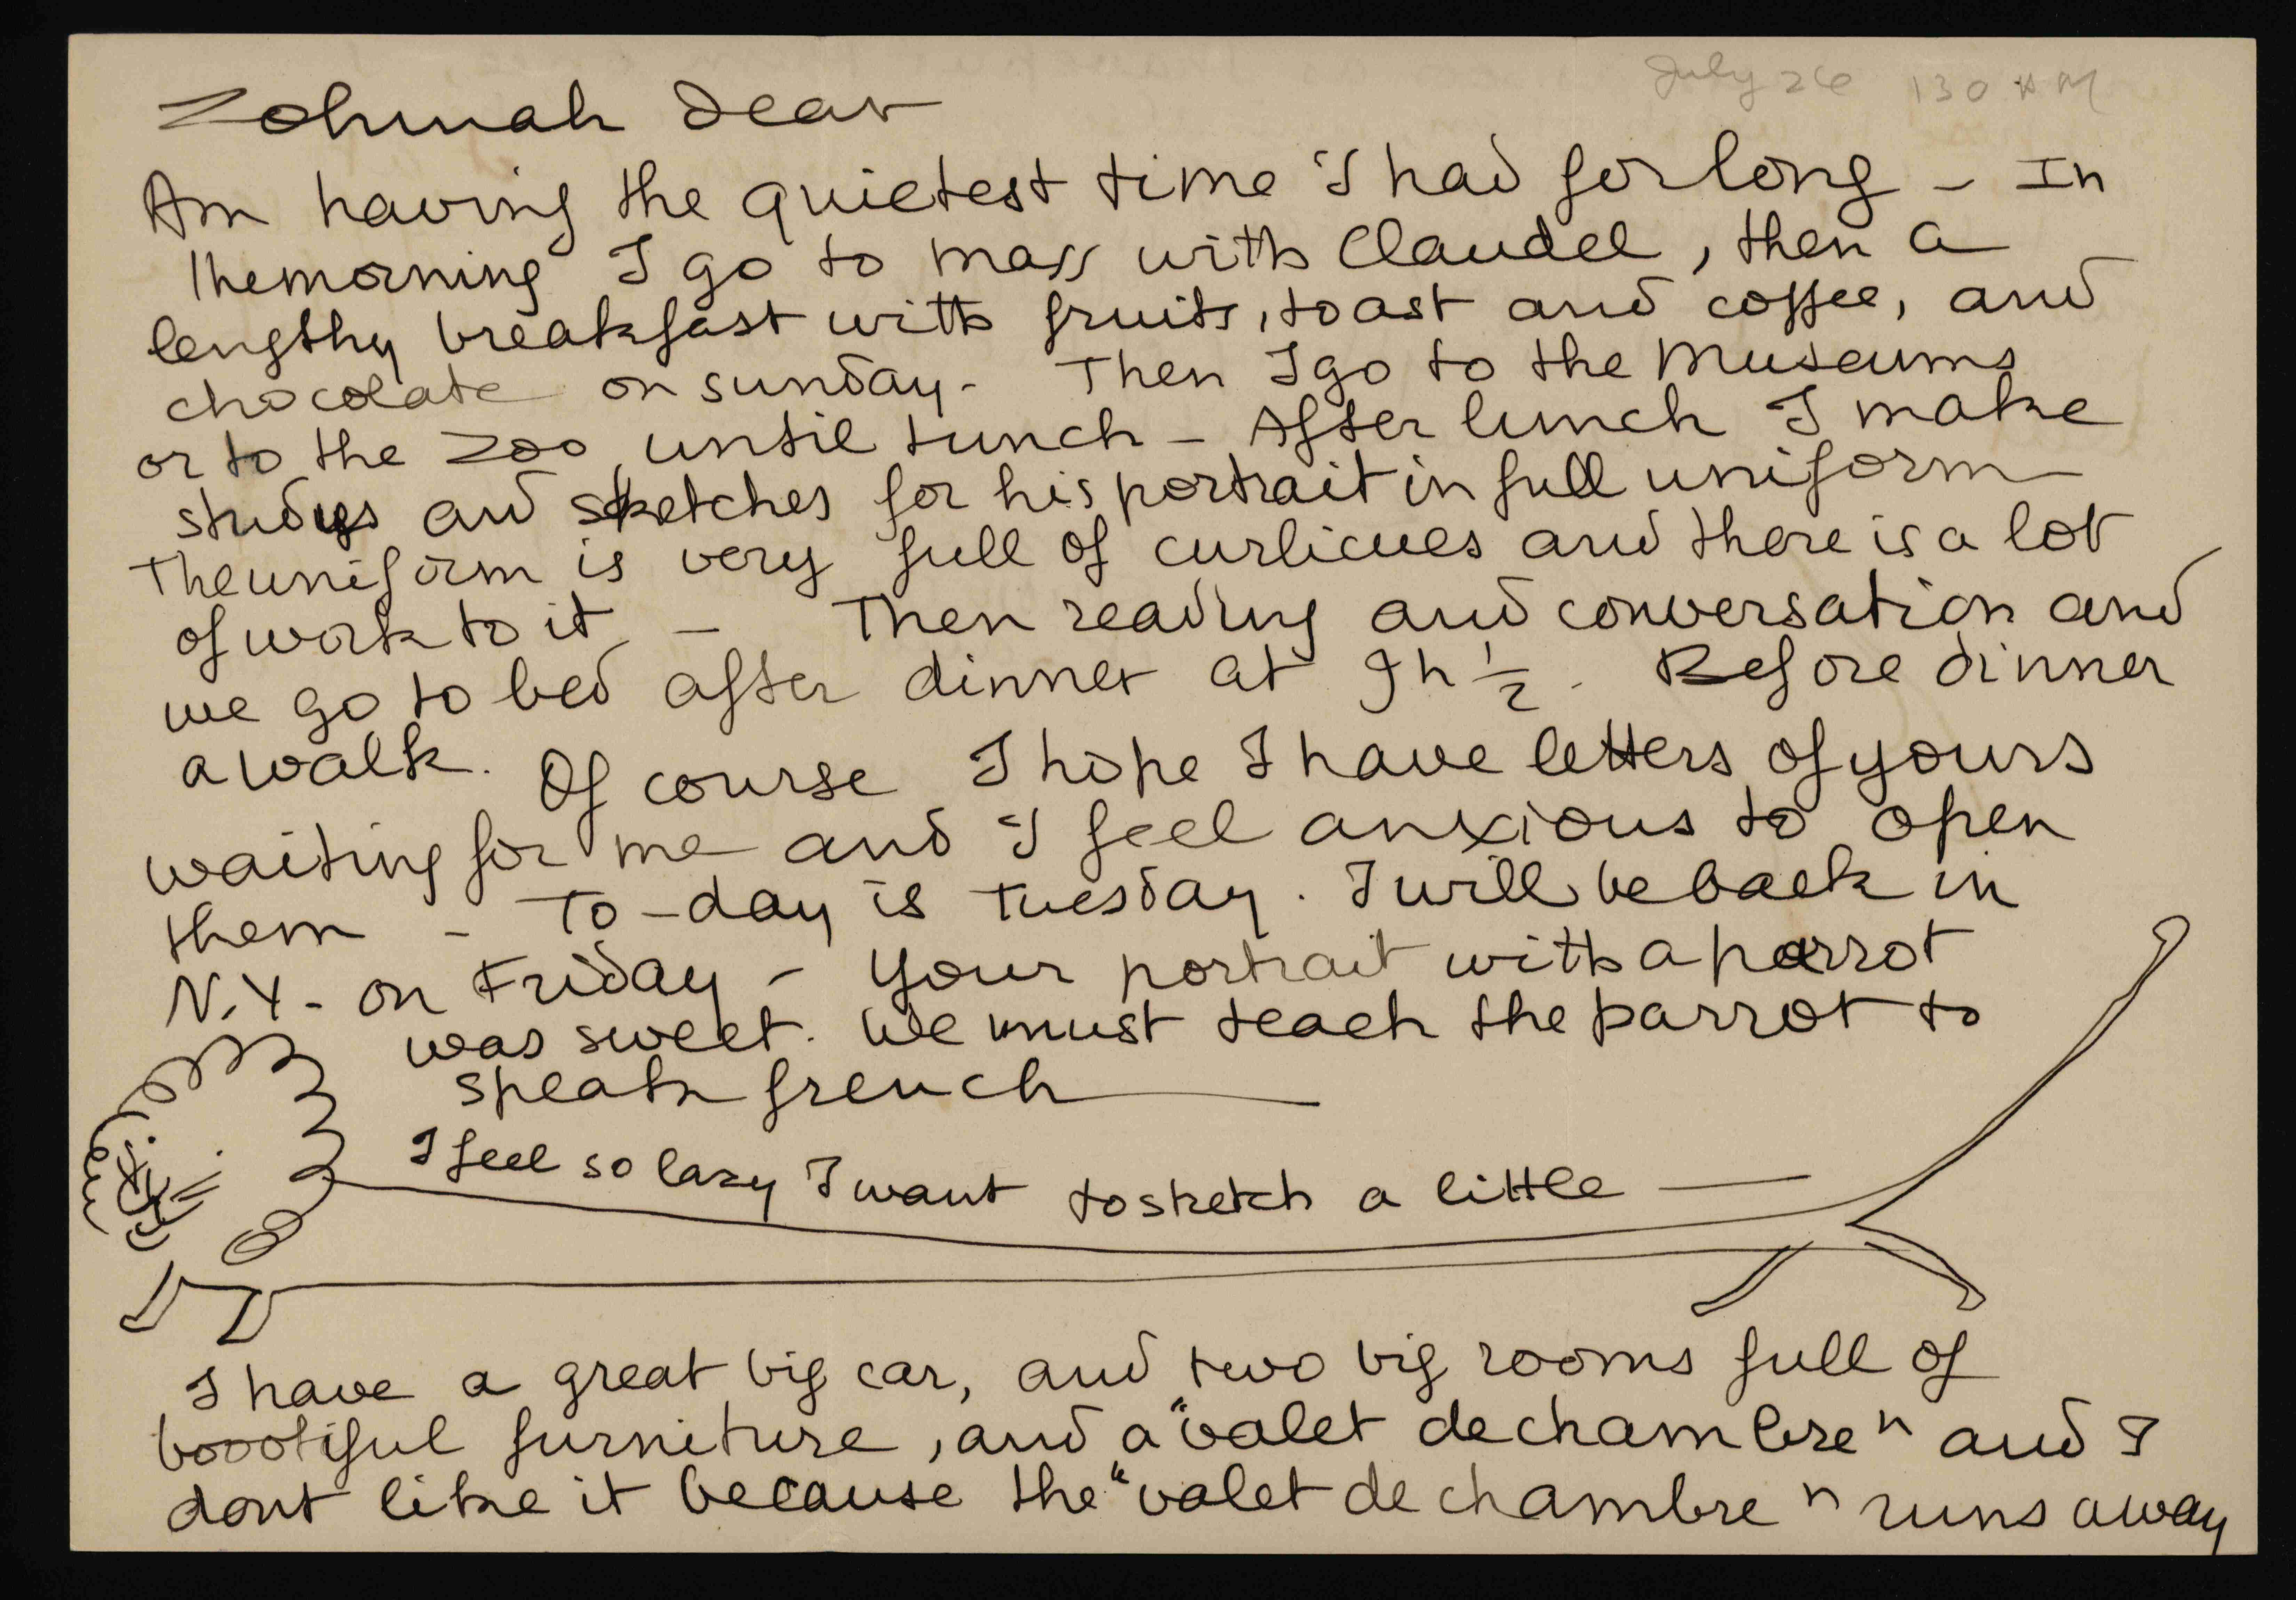 July 26 130 AM
Zohmah Dear
Am having the quietest time I had for long - In
the morning I go to mass with Claudel, then a
lengthy breakfast with fruits, toast and coffee, and
chocolate on sunday. Then I go to the Museums
or to the zoo, until lunch - After lunch I make
studys and sketches for his portrait in full uniform
The uniform is very full of curlicues and there is a lot
of work to it - Then reading and conversation and
we go to bed after dinner at 9h 1/2. Before dinner
a walk. Of course I hope I have letters of yours
waiting for me and I feel anxious to open
them - To-day is Tuesday. I will be back in
N.Y. on Friday - Your portrait with a parrot
was sweet. We must teach the parrot to
speak french
I feel so lazy I want to stretch a little -
I have a great big car, and two big rooms full of
boootiful furniture, and a "valet de chambre" and I
dont like it because the "valet de chambre" runs away